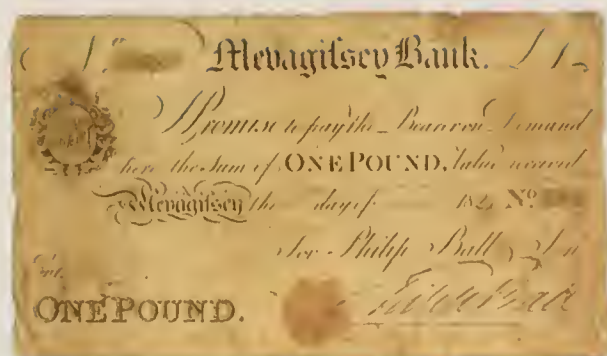 Mevagiſsey Bank. £1
I Promise to pay the Bearer on Demand
here the Sum of ONE POUND, Value received
Mevagiſsey the day of 182 No.
For Philip Ball & Son
ONE POUND.